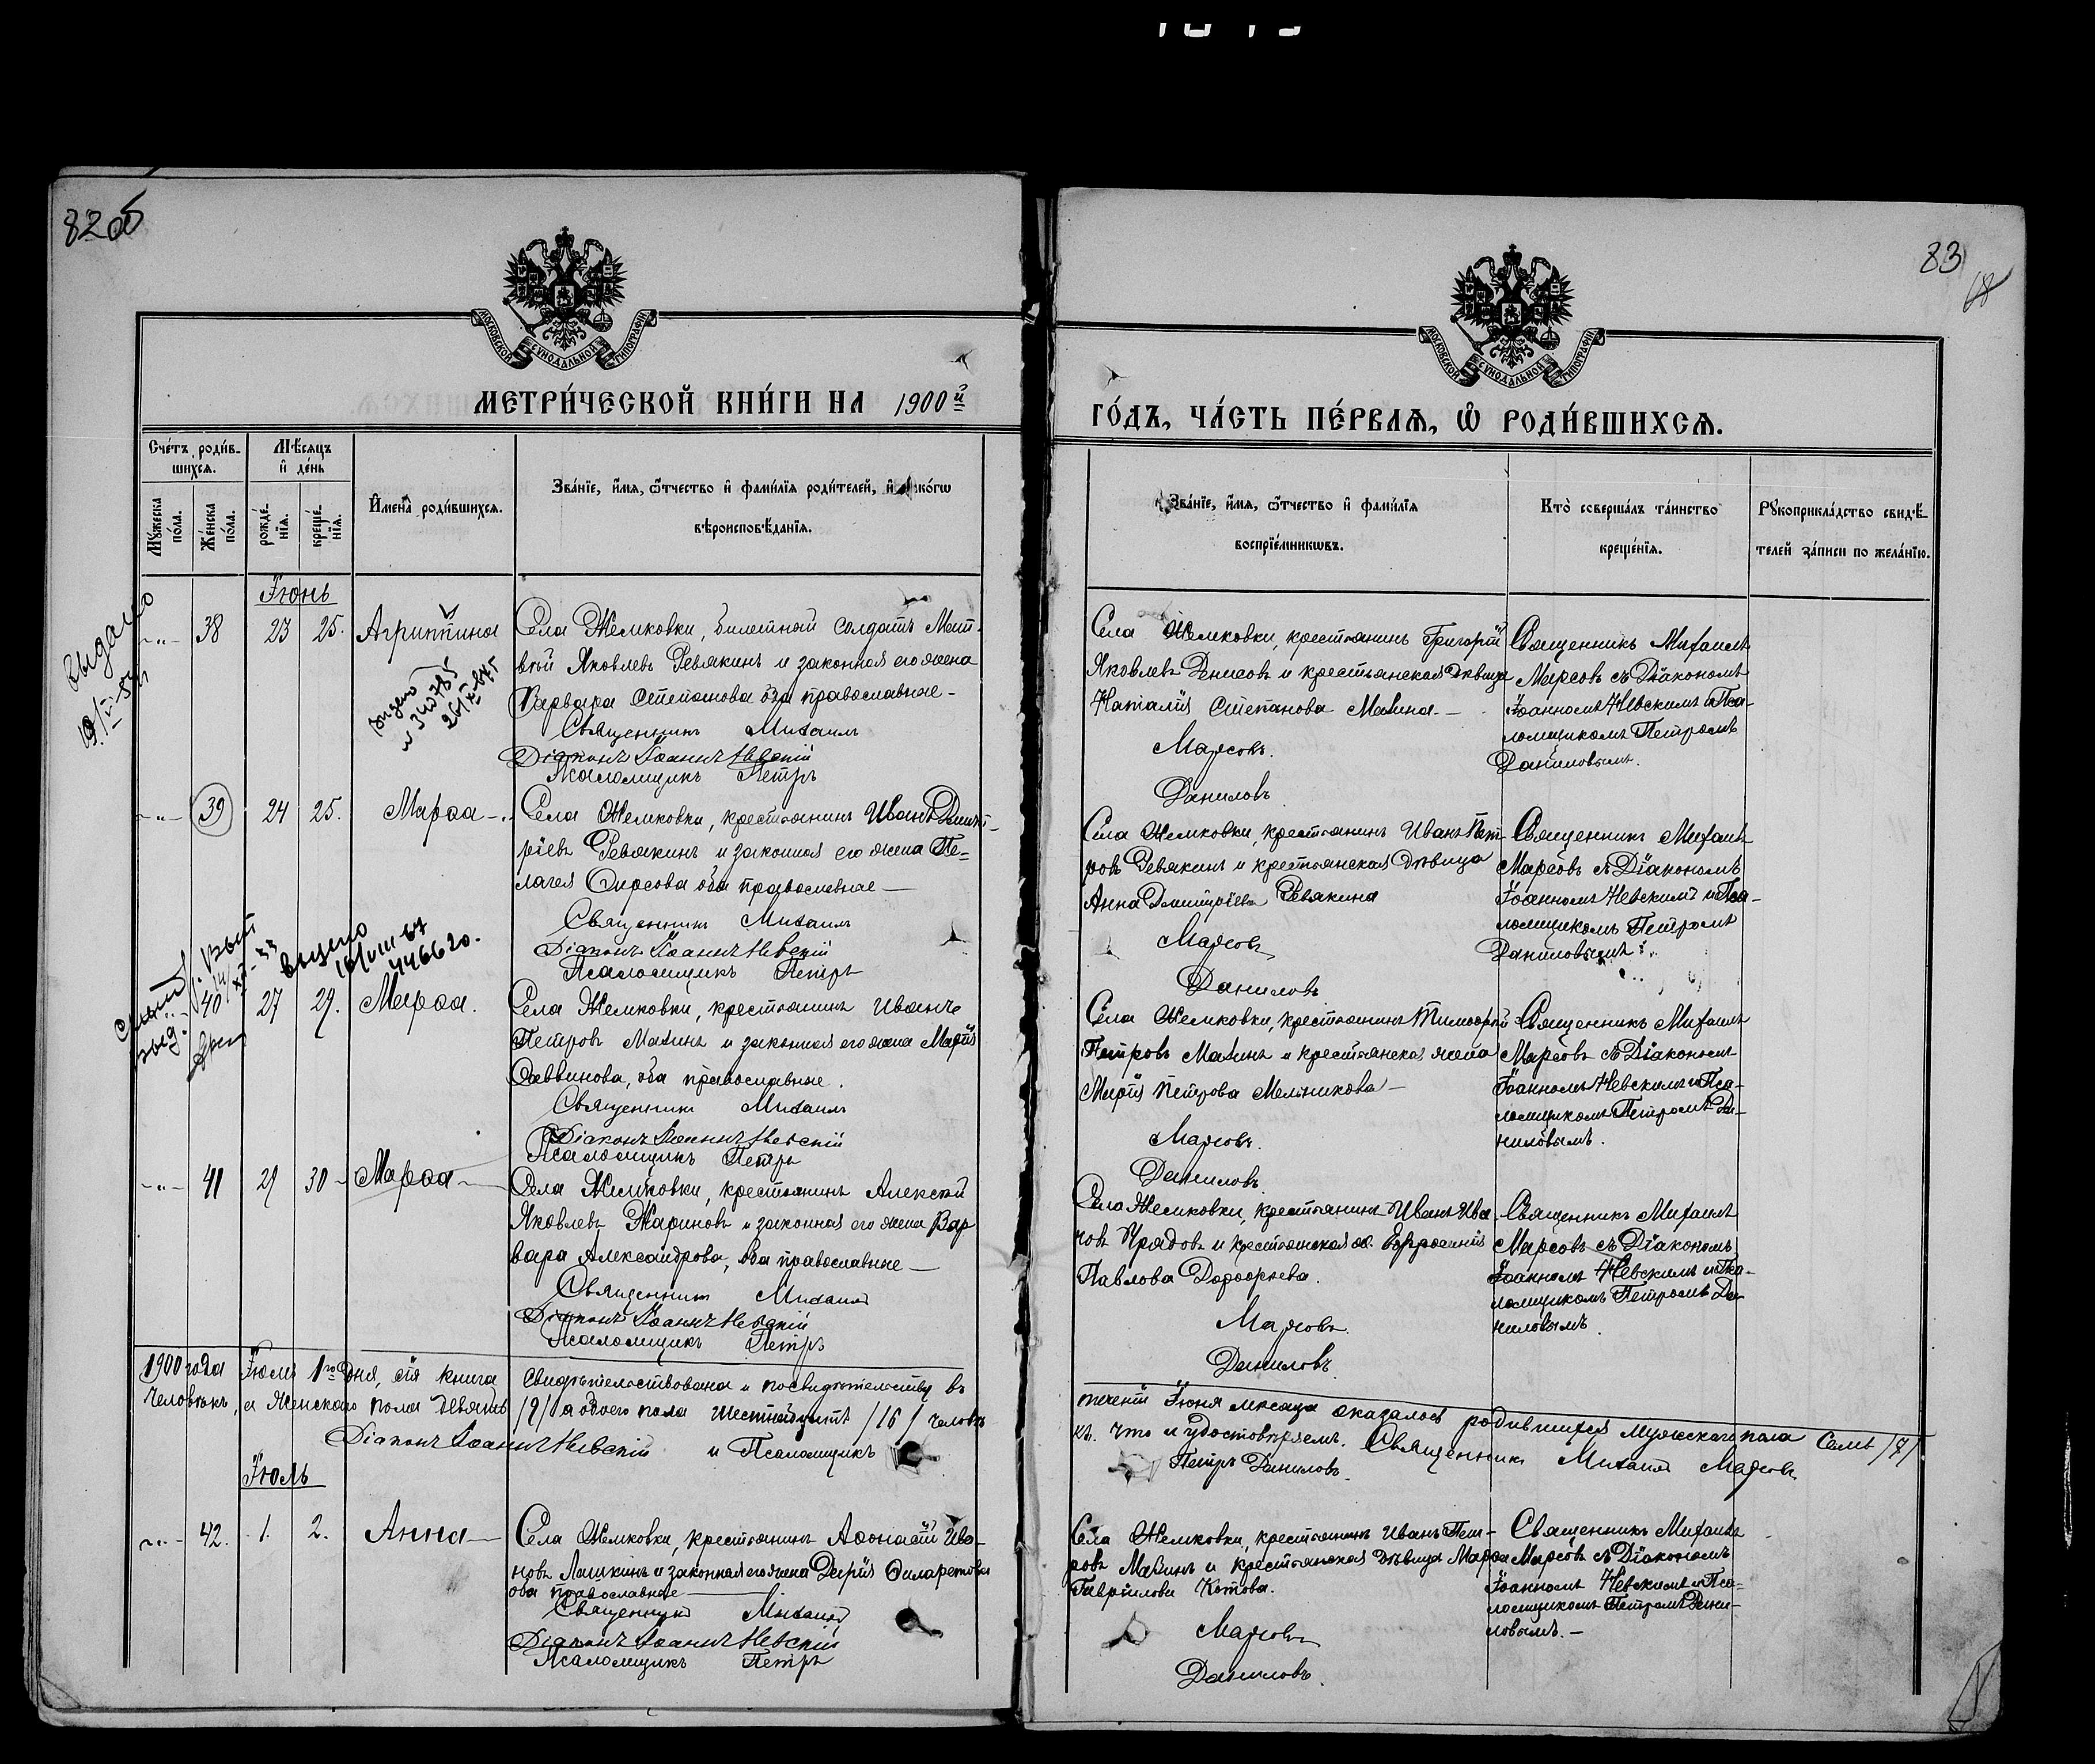 82об
МОСКОВСКОЙ СѴНОДАЛЬНОЙ ТИПОГРАФІИ
МЕТРИ́ЧЕСКОЙ КНИ́ГИ НА 1900й
Сче́тъ роди́в-
шихся.
Мѣ́сяцъ
и҆ де́нь
Мꙋ́жеска
по́ла.
Же́нска
по́ла.
рожде́-
нїя.
креще́-
нїя.
И҆мена̀ роди́вшихся.
Зва́нїе, и҆́мя, ѻ҆́тчество и҆ фами́лїя роди́телей, и҆ како́гѡ
вѣроисповѣ́данїя.
Іюнь
-"- 38 23 25. Агриппина
Села Жемковки, билетной солдатъ Мат-
вѣй Яковлевъ Ревякинъ и законная его жена
Варвара Степанова оба православные -
Священникъ Михаилъ
Діаконъ Іоаннъ Невскій
Псаломщикъ Петръ
выдано
-"- 39 24 25. Марѳа -
Села Жемковки, крестьянинъ Иванъ Димит-
ріевъ Ревякинъ и законная его жена Пе=
лагея Ѳирсова оба православные —
Священникъ Михаилъ
Діаконъ Іоаннъ Невскій
Псаломщикъ Петръ
выдано
40 27 29. Марѳа.
Села Жемковки, крестьянинъ Иванъ
Петровъ Махинъ и законная его жена Марія
Саввинова, оба православные.
Священникъ Михаилъ
Діаконъ Іоаннъ Невскій
Псаломщикъ Петръ
-"- 41 29 30 - Марѳа -
Села Жемковки, крестьянинъ Алексѣй
Яковлевъ Жариновъ и законная его жена Вар
вара Александрова, оба православные —
Священникъ Михаилъ
Діаконъ Іоаннъ Невскій
Псаломщикъ Петръ
1900 года Іюля 1го дня, сія книга свидѣтельствована и по свидѣтельству въ
человѣкъ, а женскаго пола девять /9/ а обоего пола шестнадцать /16/ человѣ
Діаконъ Іоаннъ Невскій и Псаломщикъ
Іюль
-"- 42. 1. 2. Анна —
Села Жемковки, крестьянинъ Аѳонасій Ива-
новъ Лашкинъ и законная его жена Дарія Филаретова
оба православные
Священникъ Михаилъ
Діаконъ Іоаннъ Невскій
Псаломщикъ Петръ
83
МОСКОВСКОЙ СѴНОДАЛЬНОЙ ТИПОГРАФІИ
ГО́ДЪ, ЧА́СТЬ ПЕ́РВАѦ, Ѡ҆ РОДИ́ВШИХСѦ.
Зва́нїе, и҆́мя, ѻ҆́тчество и҆ фами́лїя
воспрїе́мникѡвъ.
Кто̀ соверша́лъ та́инство
креще́нїя.
Рꙋкоприкла́дство свидѣ́-
телей за́писи по жела́нїю.
Села Жемковки, крестьянинъ Григорій
Яковлевъ Денисовъ и крестьянская дѣвица
Наталія Степанова Махина. —
Марсовъ.
Даниловъ
Священникъ Михаилъ
Марсовъ съ Діакономъ
Іоанномъ Невскимъ и Пса-
ломщикомъ Петромъ
Даниловымъ.
Села Жемковки, крестьянинъ Иванъ Пет-
ровъ Ревякинъ и крестьянская дѣвица
Анна Димитріева Ревякина
Марсовъ
Даниловъ
Священникъ Михаилъ
Марсовъ съ Діакономъ
Іоанномъ Невскимъ и Пса-
ломщикомъ Петромъ
Даниловымъ.
Села Жемковки, крестьянинъ Тимоѳей
Петровъ Махинъ и крестьянская жена
Марія Петрова Мельникова —
Марсовъ.
Даниловъ
Священникъ Михаилъ
Марсовъ съ Діакономъ
Іоанномъ Невскимъ и Пса-
ломщикомъ Петромъ Да-
ниловымъ.
Села Жемковки, крестьянинъ Иванъ Ива
новъ и крестьянская
Павлова Дороѳеева.
Марсовъ
Даниловъ
Священникъ Михаилъ
Марсовъ съ Діакономъ
Іоанномъ Невскимъ и Пса-
ломщикомъ Петромъ Да-
ниловымъ
теченіи Іюня месяца оказалось родившихся мужескаго пола семь /7/
къ. Что и удостовѣряемъ. Священникъ Михаилъ Марсовъ
Петръ Даниловъ
Села Жемковки, крестьянинъ Иванъ Пет-
ровъ Махинъ и крестьянская дѣвица Марѳа
Гавріилова Котова.
Марсовъ
Даниловъ.
Священникъ Михаилъ
Марсовъ съ Діакономъ
Іоанномъ Невскимъ и Пса=
ломщикомъ Петромъ Дани-
ловымъ. —